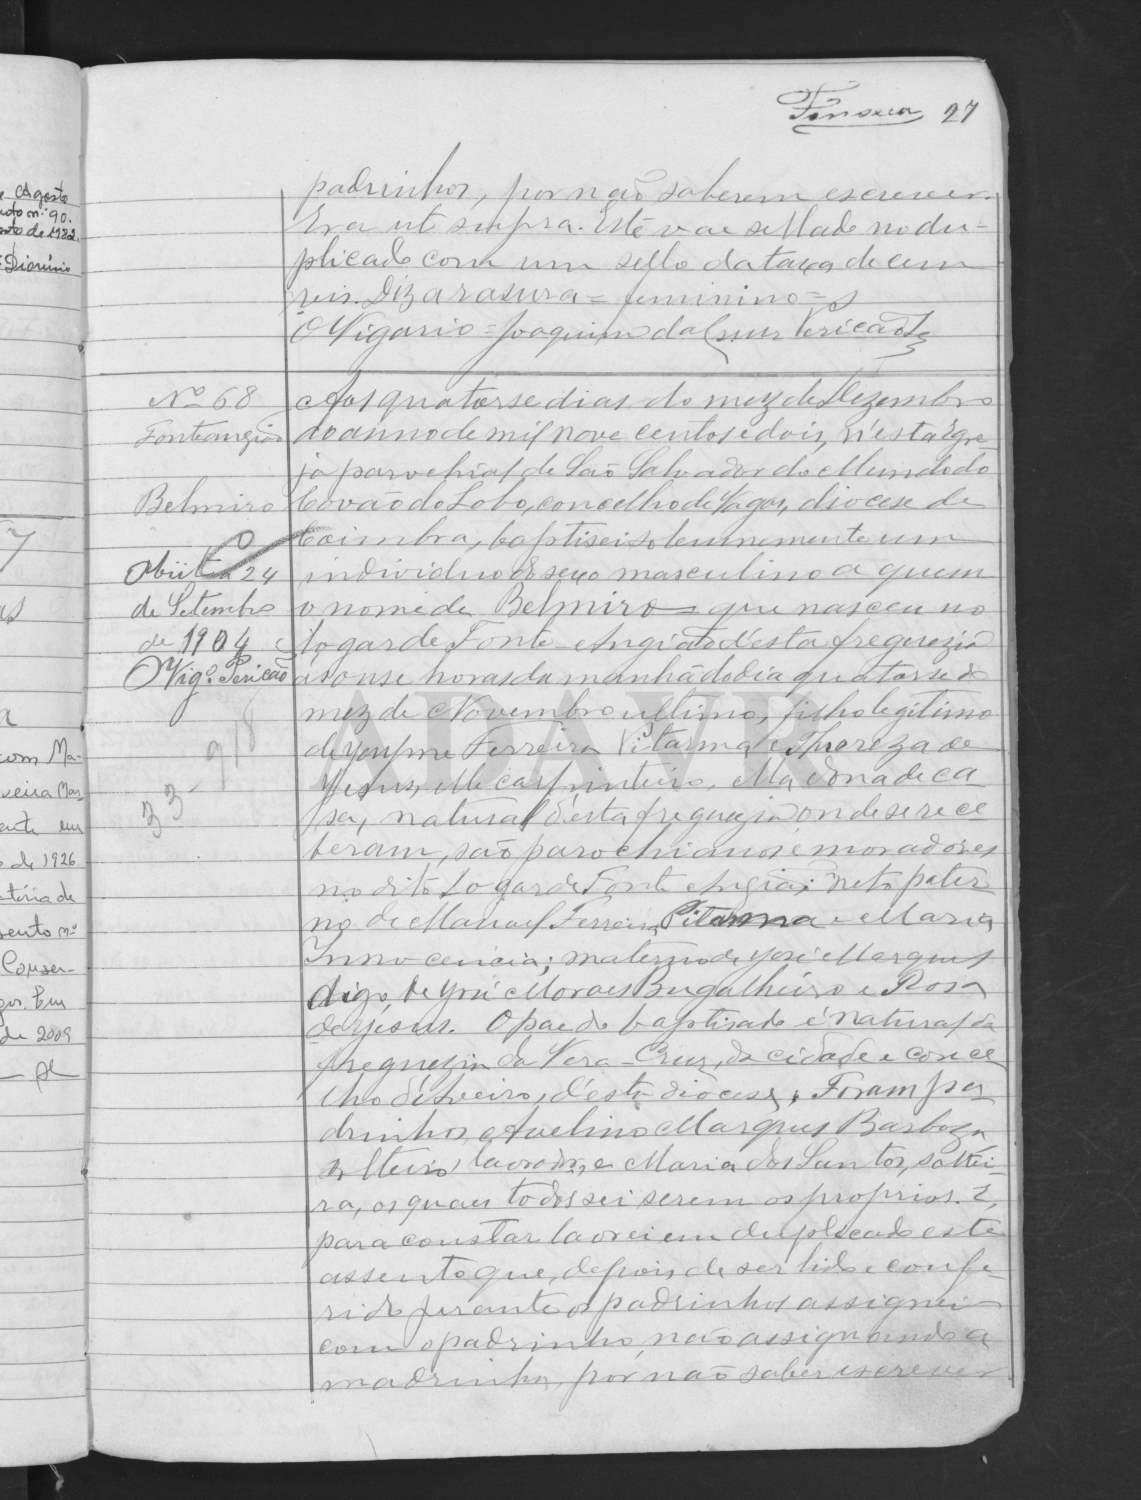 Fonseca 27
padrinhos, por não saberem escrever.
Era ut supra. Este vae sellado no du-
plicado com um sello da taxa de cem
reis. Diz a rasura = feminino =
O Vigario = Joaquim da Cruz Pericão
Nº 68
Fonteangião
Belmiro
Obiit a 24
de Setembro
de 1904
O Vigº Pericão
33 - 918
Aos quatorse dias do mez de Dezembro
do anno de mil nove centos e dois, n'esta Egre
ja parochial de São Salvador do Mundo do
Covão do Lobo, concelho de Vagos, diocese de
Coimbra, baptisei solemnemente um
individuo do sexo masculino a quem
o nome de Belmiro = que nasceu no
logar de Fonte Angião d'esta freguezia
ás onse horas da manhã do dia quatorse do
mez de Novembro ultimo, filho legitimo
de Ferreira Pitarma e Thereza de
Jesus, elle carpinteiro, ella dona de ca
sa, natural d'esta freguezia onde se rece
beram, são parochianos e moradores
no dito Logar de Fonte Angião; neto pater
no de Manoel Ferreira Pitarma e Maria
Innocencia; materno de José Marques
digo, de José Moraes Bugalheiro e Rosa
de Jesus. O pae do baptisado é natural da
freguezia da Vera-Cruz, da cidade e conce
lho d'Aveiro, d'esta diocese. Foram pa
drinhos Avelino Marques Barboza,
solteiro, lavrador, e Maria dos Santos, soltei-
ra, os quaes todos sei serem os proprios. E,
para constar lavrei em duplicado este
assento que, depois de ser lido e confe-
rido perante os padrinhos assignei
com o padrinho, não assignando a
madrinha, por não saber escrever
ADAVR
e Agosto
nº 90.
de 1982.
Dionisio
com Ma-
veira Mar-
em
de 1926
atória de
sento nº
Conser-
Em
de 2009